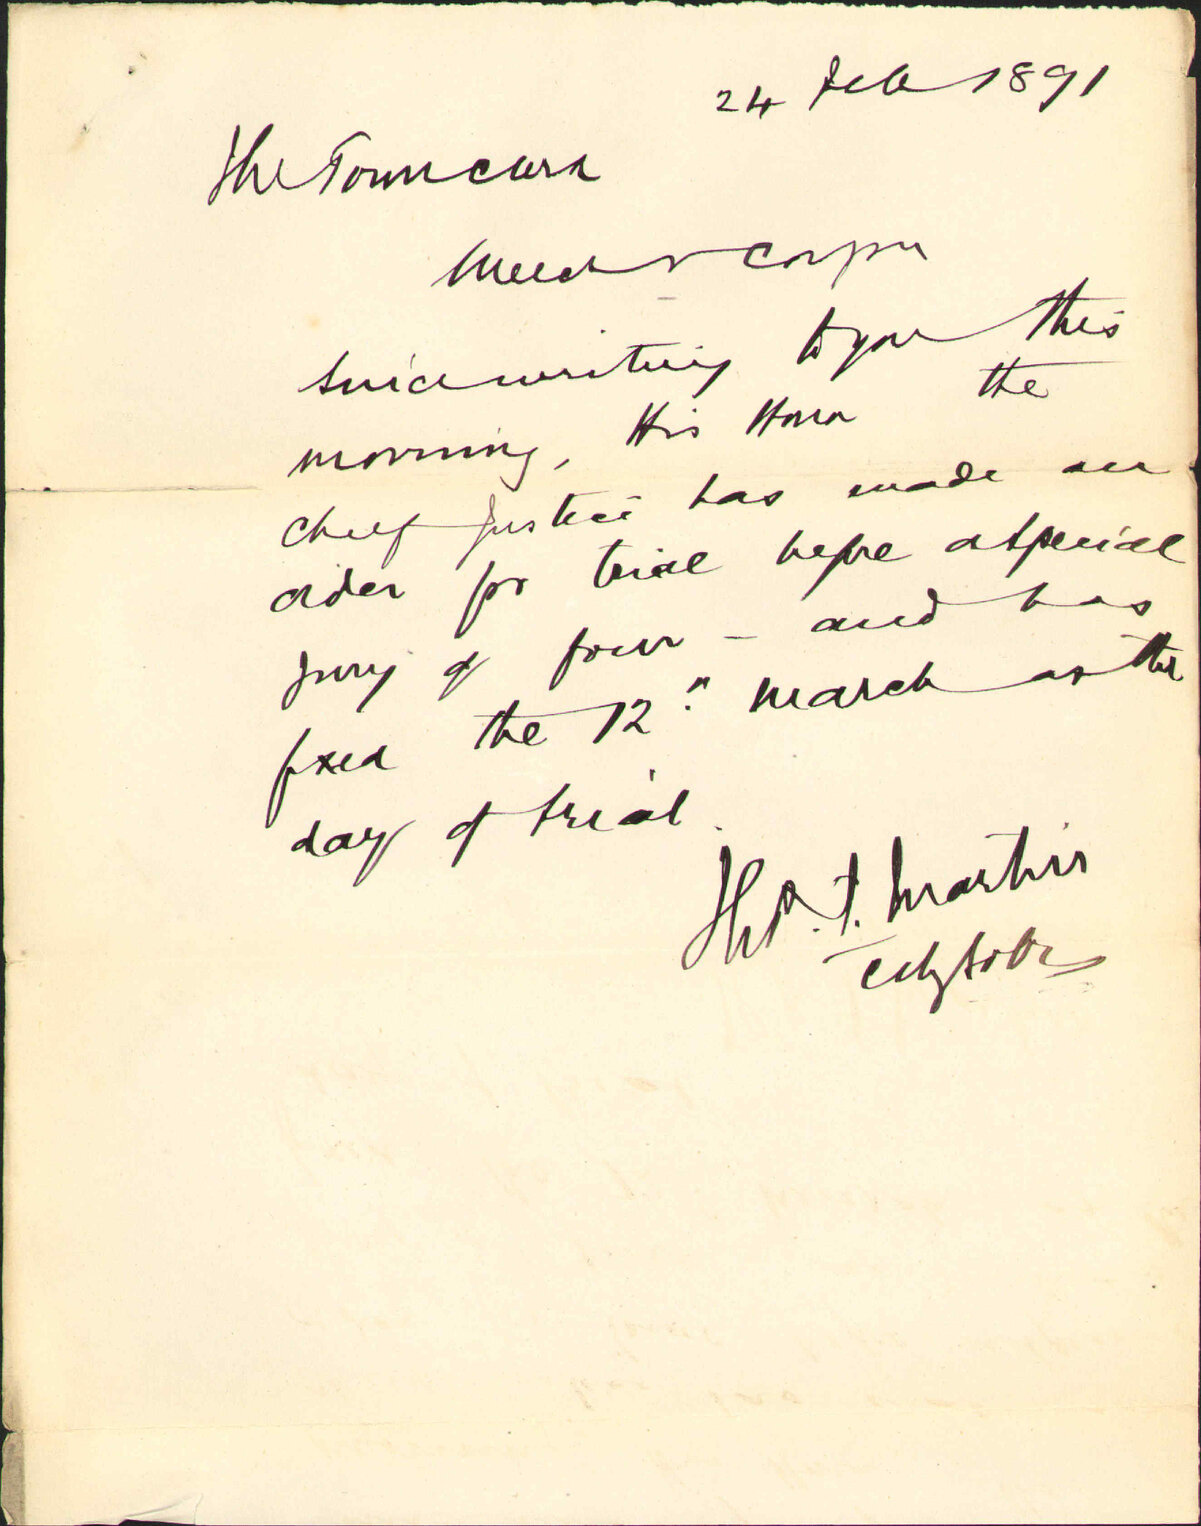 24 Feb 1891
The Town Clerk
Meech v Corpn
Since writing to you this
morning, His Honor the
Chief Justice has made an
order for trial before a Special
jury of four - and has
fixed the 12th March as the
day of trial.
Thos. F. Martin
City Solr